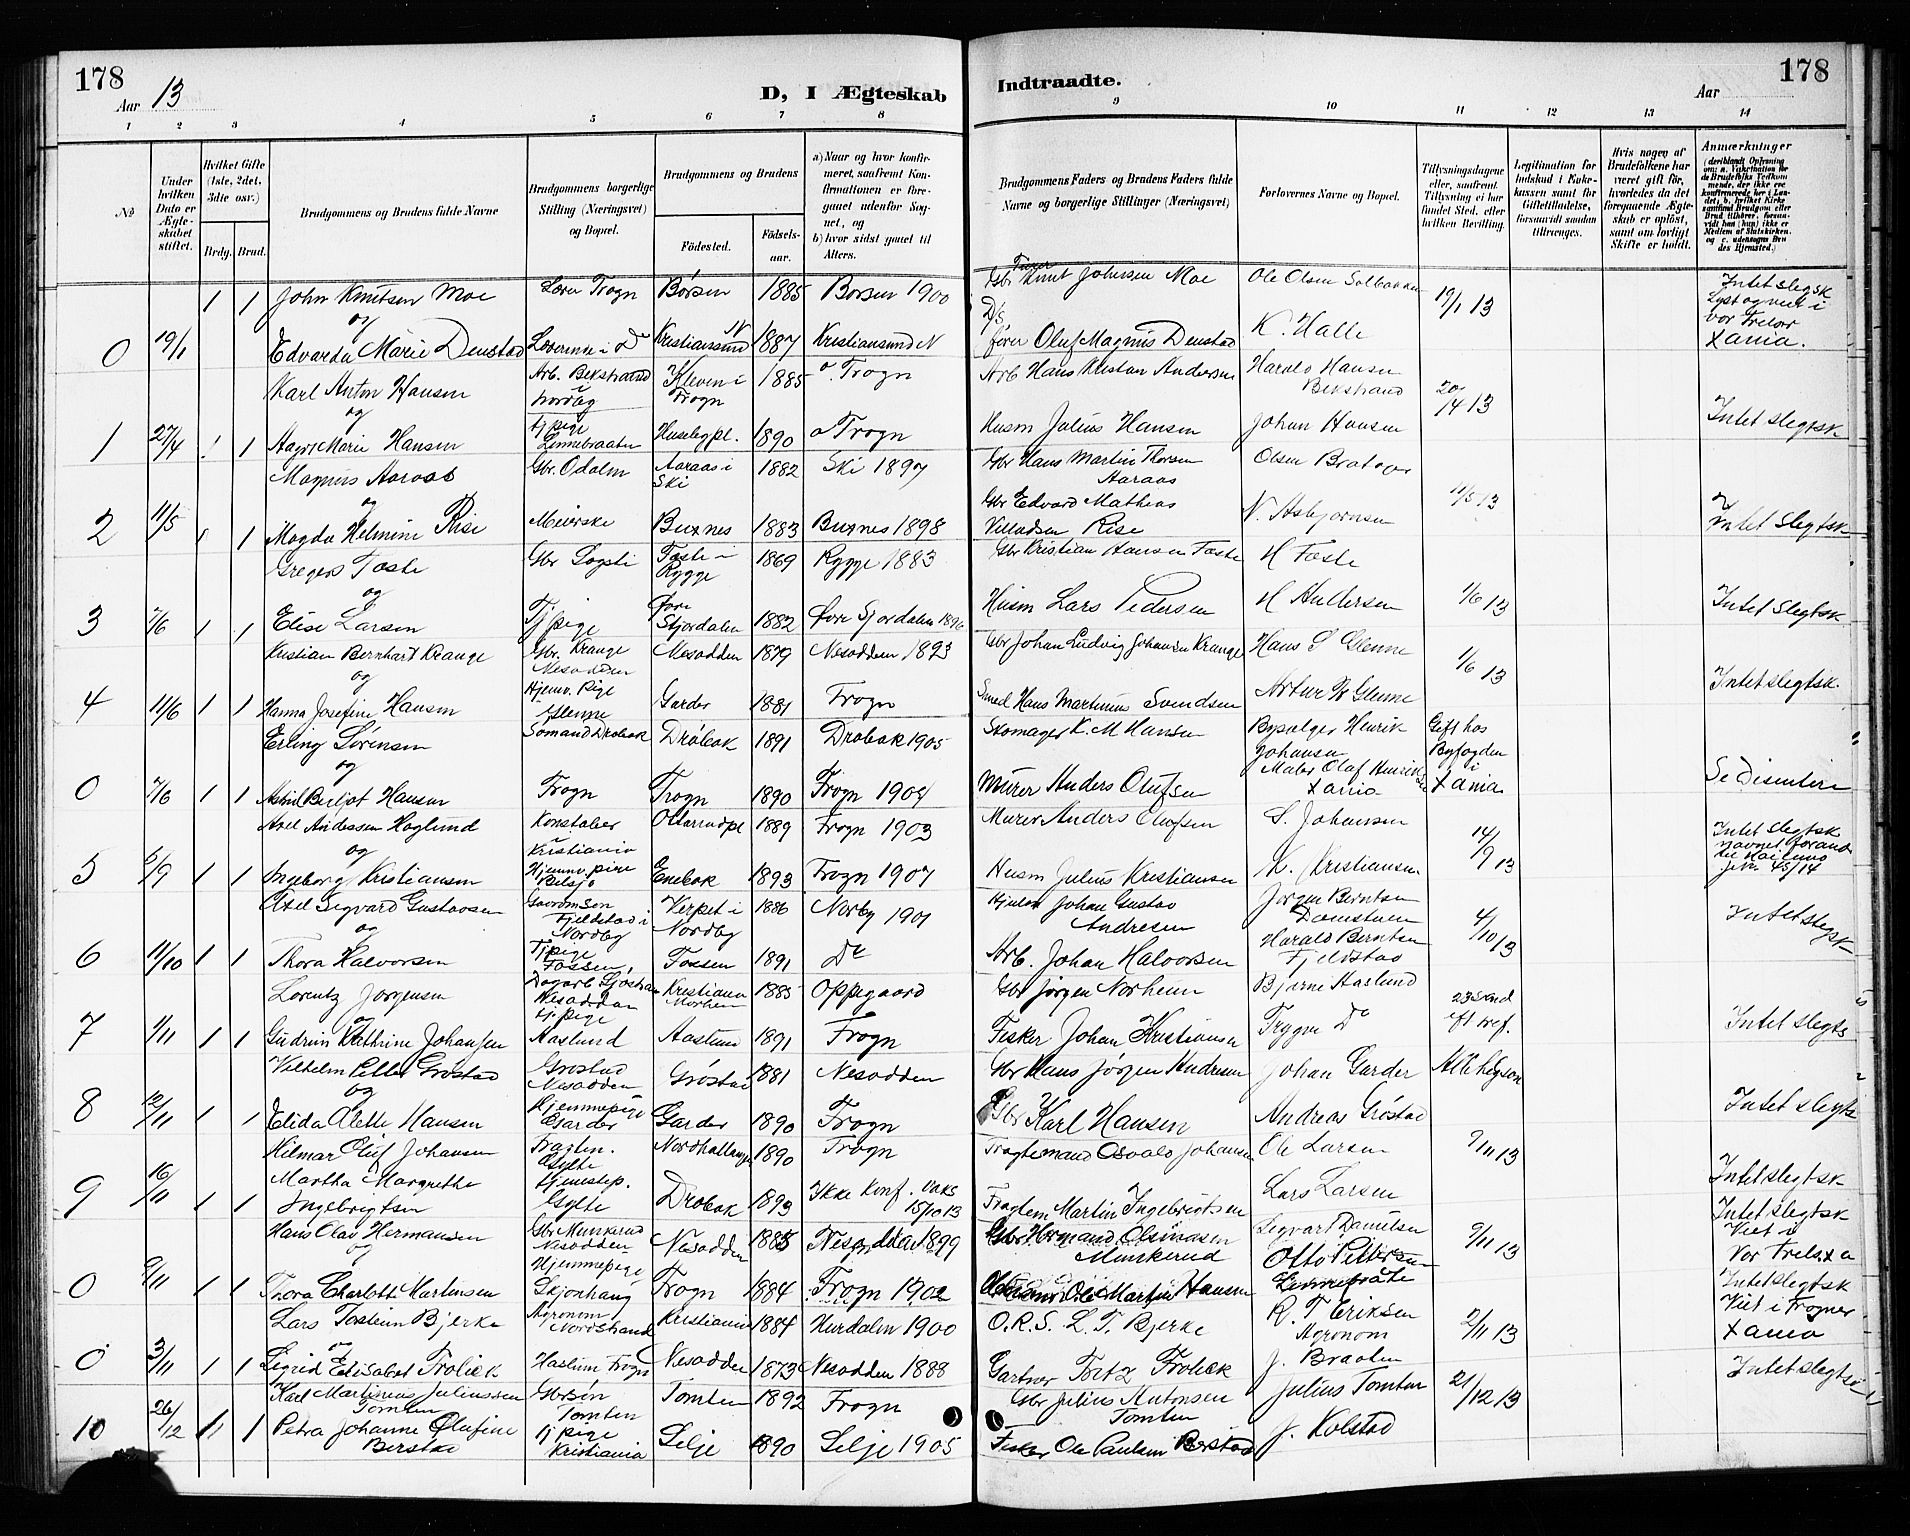 178
Aar 13
D, I Ægteskab
Indtraadte.
178
Aar
1 2 3 4 5 6 7 8 9 10 11 12 13 14
No
Under hvilken Dato er Ægteskabet stiftet.
Hvilket Gifte (1ste, 2det, 3die osv.)
Brdg. Brud.
Brudgommens og Brudens fulde Navne
Brudgommens borgerlige Stilling (Næringsvei) og Bopæl.
Brudgommens og Brudens
Födested. Födselsaar.
a) Naar og hvor konfirmeret, saafremt Konfirmationen er foregaaet udenfor Sognet, og
b) hvor sidst gaaet til Alters.
Brudgommens Faders og Brudens Faders fulde Navne og borgerlige Stillinger (Næringsvei)
Forlovernes Navne og Bopæl.
Tillysningsdagene eller, saafremt Tillysning ei har fundet Sted, efter hvilken Bevilling.
Legitimation for Indskud i Enkekassen samt for Giftetilladelse, forsaavidt saadan tiltrænges.
Hvis nogen af Brudefolkene har været gift för, hvorledes da det foregaaende Ægteskab er oplöst, samt om lovligt Skifte er holdt.
Anmærkninger
1 1 John Knutsen Moe Frogn Børsen 1885 Børsen 1900 Gbr Knut Johnsen Moe Ole Olsen Solbakken 19/1 13 Intet slegtsk
og
Lyst og viet i
vor Frelser
0 19/1 Edvarda Marie Denstad Lererinne i Do Kristiansund N 1887 Kristiansund N fører Oluf Magnus Denstad K. Halle Xania.
Karl Anton Hansen Arb. Bekstrand i Nordby Kleven i Frogn 1885 Frogn Arb Hans Kristan Andersen Harald Hansen Bekstrand 20/4 13
og
1 27/4 1 1 Aagot Marie Hansen Tj pige Linnebraaten Huseby pl. 1890 Frogn Husm Julius Hansen Johan Hansen Intet slegtsk
Magnus Aaraas Gbr. Odalm Aaraas i Ski 1882 Ski 1897 Gbr Hans Martin Thorsen Aaraas Olsen 11/5 13
og
2 11/5 1 1 Magda Helmine Riise Meierske Buxnes 1883 Buxnes 1898 Gbr Edvard Mathias Villadsen Rise N. Asbjørnsen Intet Slegtsk
Gregers Foste Gbr Sogsti Foste Rygge 1869 Rygge 1883 Gbr Kristian Hansen Foste H Foste
og
3 7/6 1 1 Elise Larsen Tj pige Øvre Stjordalen 1882 Øvre Stjordalen 1896 Husm Lars Pedersen H Hullersen 1/6 13 Intet Slegtsk
Kristian Bernhart Krange Gbr. Krange Nesodden Nesodden 1879 Nesodden 1893 Gbr Johan Ludvig Johansen Krange Hans S Glenne 1/6 13
og
4 11/6 1 1 Hanna Josefine Hansen Hjemv. Pige Glenne Garder 1881 Frogn Smed Hans Martinius Svendsen Artur Glenne Intet slegtsk.
Erling Sørensen Sømand Drøbak Drøbak 1891 Drøbak 1905 Skomager K. M Hansen Henrik Johansen Gift hos Byfogden i Xania
og
0 7/6 1 1 Astrid Berljot Hansen Frogn Frogn 1890 Frogn 1904 Murer Anders Olufsen Maler Olaf Henriksen Xania Se Disentere
Axel Andersen Haglund Konstabel i Kristiania Ottarrudpl 1889 Frogn 1903 Murer Anders Olufsen S. Johansen 14/9 13 Intet Slegtsk
og
5 1 1 Ingeborg Kristiansen Hjemmv. pige Enebak 1893 Frogn 1907 Husm Julius Kristiansen K. Kristiansen
Axel Sigvard Gustavsen Fjeldstad i Nordby Verpet i Nordby 1886 Norby 1901 Johan Gustav Andresen Jørgen Berntsen 4/10 13 Intet slegtsk
og
6 11/10 1 1 Thora Halvorsen Tj pige Fossen, Fossen 1891 Do Arb. Johan Halvorsen Harald Berntsen Fjeldstad
Lorentz Jørgensen Nesodden Kristiania 1885 Oppegaard Gbr Jørgen Norheim Bjarne Haslund
og
7 1/11 1 1 Gudrun Kathrine Johansen Tj. pige Haslund Haslund 1891 Frogn Fisker Johan Kristiansen Trygve Do Intet slegts
Vilhelm Petter Grøstad Grøstad Nesodden Grøstad 1881 Nesodden Gbr Hans Jørgen Andresen Johan Garder
og
8 12/11 1 1 Elida Alette Hansen Hjemmepige Garder Garder 1890 Frogn Gbr Karl Hansen Andreas Grøstad Intet slegts
Hilmar Oluf Johansen Fragtm. Gylte 1890 Frogn Fragtemand Osvald Johansen Ole Larsen 9/11 13
9 16/11 1 1 Martha Margrethe Ingebrigtsen Hjemmep. Gylte Drøbak 1893 Ikke konf. vaks 15/10 13 Fragtem Martin Ingebrigtsen Lars Larsen Intet slegtsk
Hans Olav Hermansen Gbr Munkerud Nesodden Nesodden 1885 Nesodden 1899 Gbr Hermand Olsinasen Munkerud Sigvart Danielsen 9/11 13 Intet slegtsk
og
Viet i
Vor Frels Xa
0 9/11 1 1 Thora Charlotte Martinsen Hjemmepige Skjønhaug Frogn 1884 Frogn 1902 Ole Martin Hansen Otto Pettersen Linnebråte
Lars Tostein Bjerke Agronom Nordstrand Kristiania 1884 Hurdalen 1900 O.R.S. L. T. Bjerke R. T. Eriksen Agronom 2/11 13 Intet slegtsk Viet i Frogner Xania
og
0 3/11 1 1 Sigrid Elisabet Frolick Haslum Frogn Nesodden 1873 Nesodden 1888 Gartner Fritz Frolick J. Braaten
Karl Martineus Juliussen Tomten Gbrsøn Tomten Tomten 1892 Frogn Gbr Julius Antonsen Tomten Julius Tomten 21/12 13 Intet slegts
10 26/12 1 1 Petra Johanne Olufine Berstad Tj pige Kristiania Selje 1890 Selje 1905 Fisker Ole Paulsen Berstad J. Kolstad